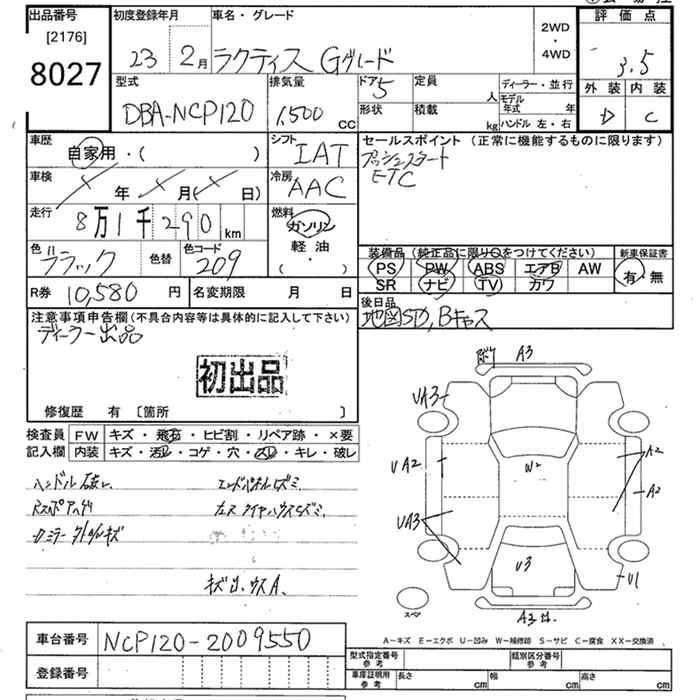 出品番号
[2176]
8027
初度登録年月
23 2月
車名・グレード
ラクティス Gグレード
2WD
・
4WD
評価点
3.5
外装 内装
D C
型式
DBA-NCP120
排気量
1,500 CC
ドア 5
形状
定員 人
積載 kg
ディーラー・並行
モデル年式 年
ハンドル 左・右
車歴
自家用・( )
シフト
IAT
セールスポイント (正常に機能するものに限ります)
プッシュスタート
ETC
車検
年 月( 日)
冷房
AAC
走行
8万1千290km
燃料
ガソリン
軽油
( )
色
ブラック
色替
色コード
209
装備品 (純正品に限り○をつけてください)
PS PW ABS エアB AW
SR ナビ TV カワ
新車保証書
有・無
R券 10,580 円
名変期限 月 日
後日品
地図SD, Bキャス
注意事項申告欄(不具合内容等は具体的に記入して下さい)
ディーラー出品
初出品
修復歴 有 〔箇所 〕
検査員
記入欄
FW キズ・飛石・ヒビ割・リペア跡・×要
内装 キズ・汚レ・コゲ・穴・スレ・キレ・破レ
キズ出、ウスA、
A3
UA3
UA2
UA3
W2
A2
A2
U3
U1
スペア
A－キズ E－エクボ U－凹み W－補修跡 S－サビ C－腐食 XX－交換済
車台番号
NCP120-2009550
登録番号
型式指定番号
参考
類別区分番号
参考
車庫証明用
参考
長さ cm
幅 cm
高さ cm